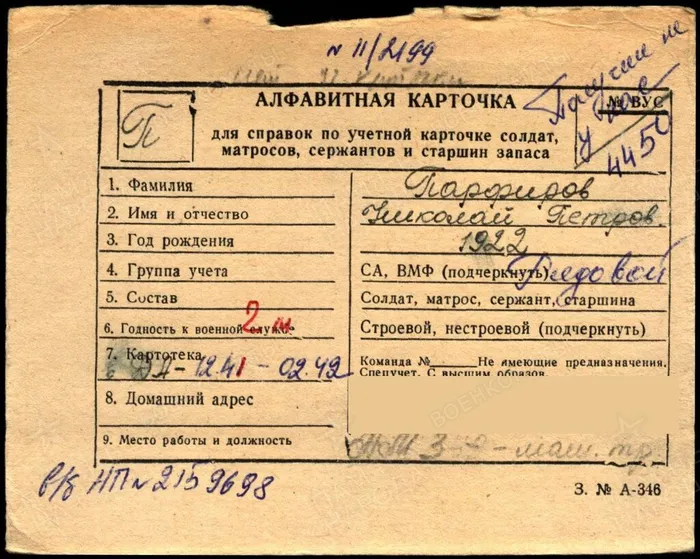 № 11/2199
Получил не
у нас
№ ВУС
4450
П
АЛФАВИТНАЯ КАРТОЧКА
для справок по учетной карточке солдат,
матросов, сержантов и старшин запаса
1. Фамилия Парфиров
2. Имя и отчество Николай Петров.
3. Год рождения 1922
4. Группа учета СА, ВМФ (подчеркнуть) Рядовой
5. Состав Солдат, матрос, сержант, старшина
6. Годность к военной служб. Строевой, нестроевой (подчеркнуть)
7. Картотека Команда № Не имеющие предназначения.
12.41 - 02.42 Спецучет. С высшим образов.
8. Домашний адрес
9. Место работы и должность маш. тр.
в/б НП № 2159698
З. № А-346